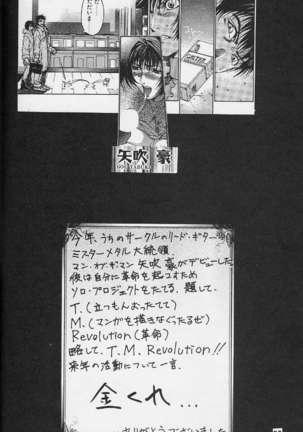 矢吹豪
GO YABUKI
今年、うちのサークルのリード・ギター
ミスターメタル大統領
マン・オブ・ザ・マン 矢吹 豪がデビューした
彼は自分に革命を起こすため
ソロ・プロジェクトをたてる。題して、
T.(立つもんおったてて)
M.(マンガを描きなぐったるぜ)
Revolution(革命)
略して、T.M.Revolution!!
来年の活動について一言。
金くれ…
ありがとうございました